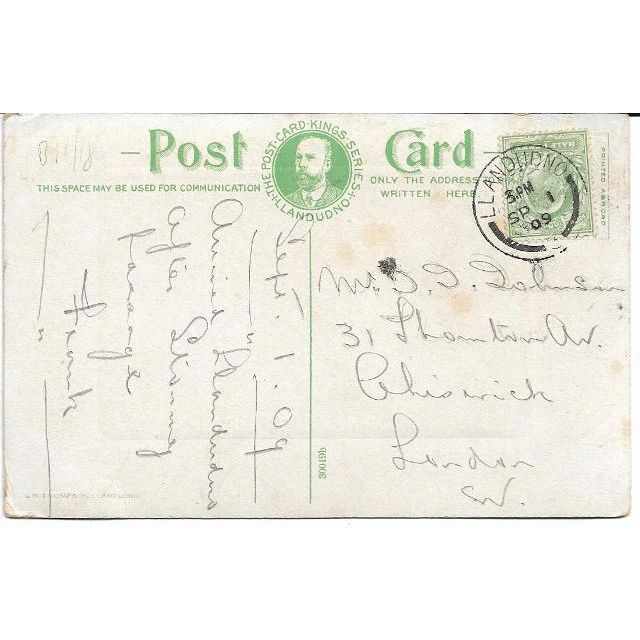 Post Card
THE·POST·CARD·KINGS·SERIES·LLANDUDNO
THIS SPACE MAY BE USED FOR COMMUNICATION
ONLY THE ADDRESS
WRITTEN HERE
LLANDUDNO
5 PM
SP 1
09
PRINTED ABROAD
Sept. 1. 09
Arrived Llandudno
after Stormy
passage
Frank
Mr. T. I. Johnson
31 Thornton Av.
Chiswick
London
W.
30019b
THOMPSON, LLANDUDNO